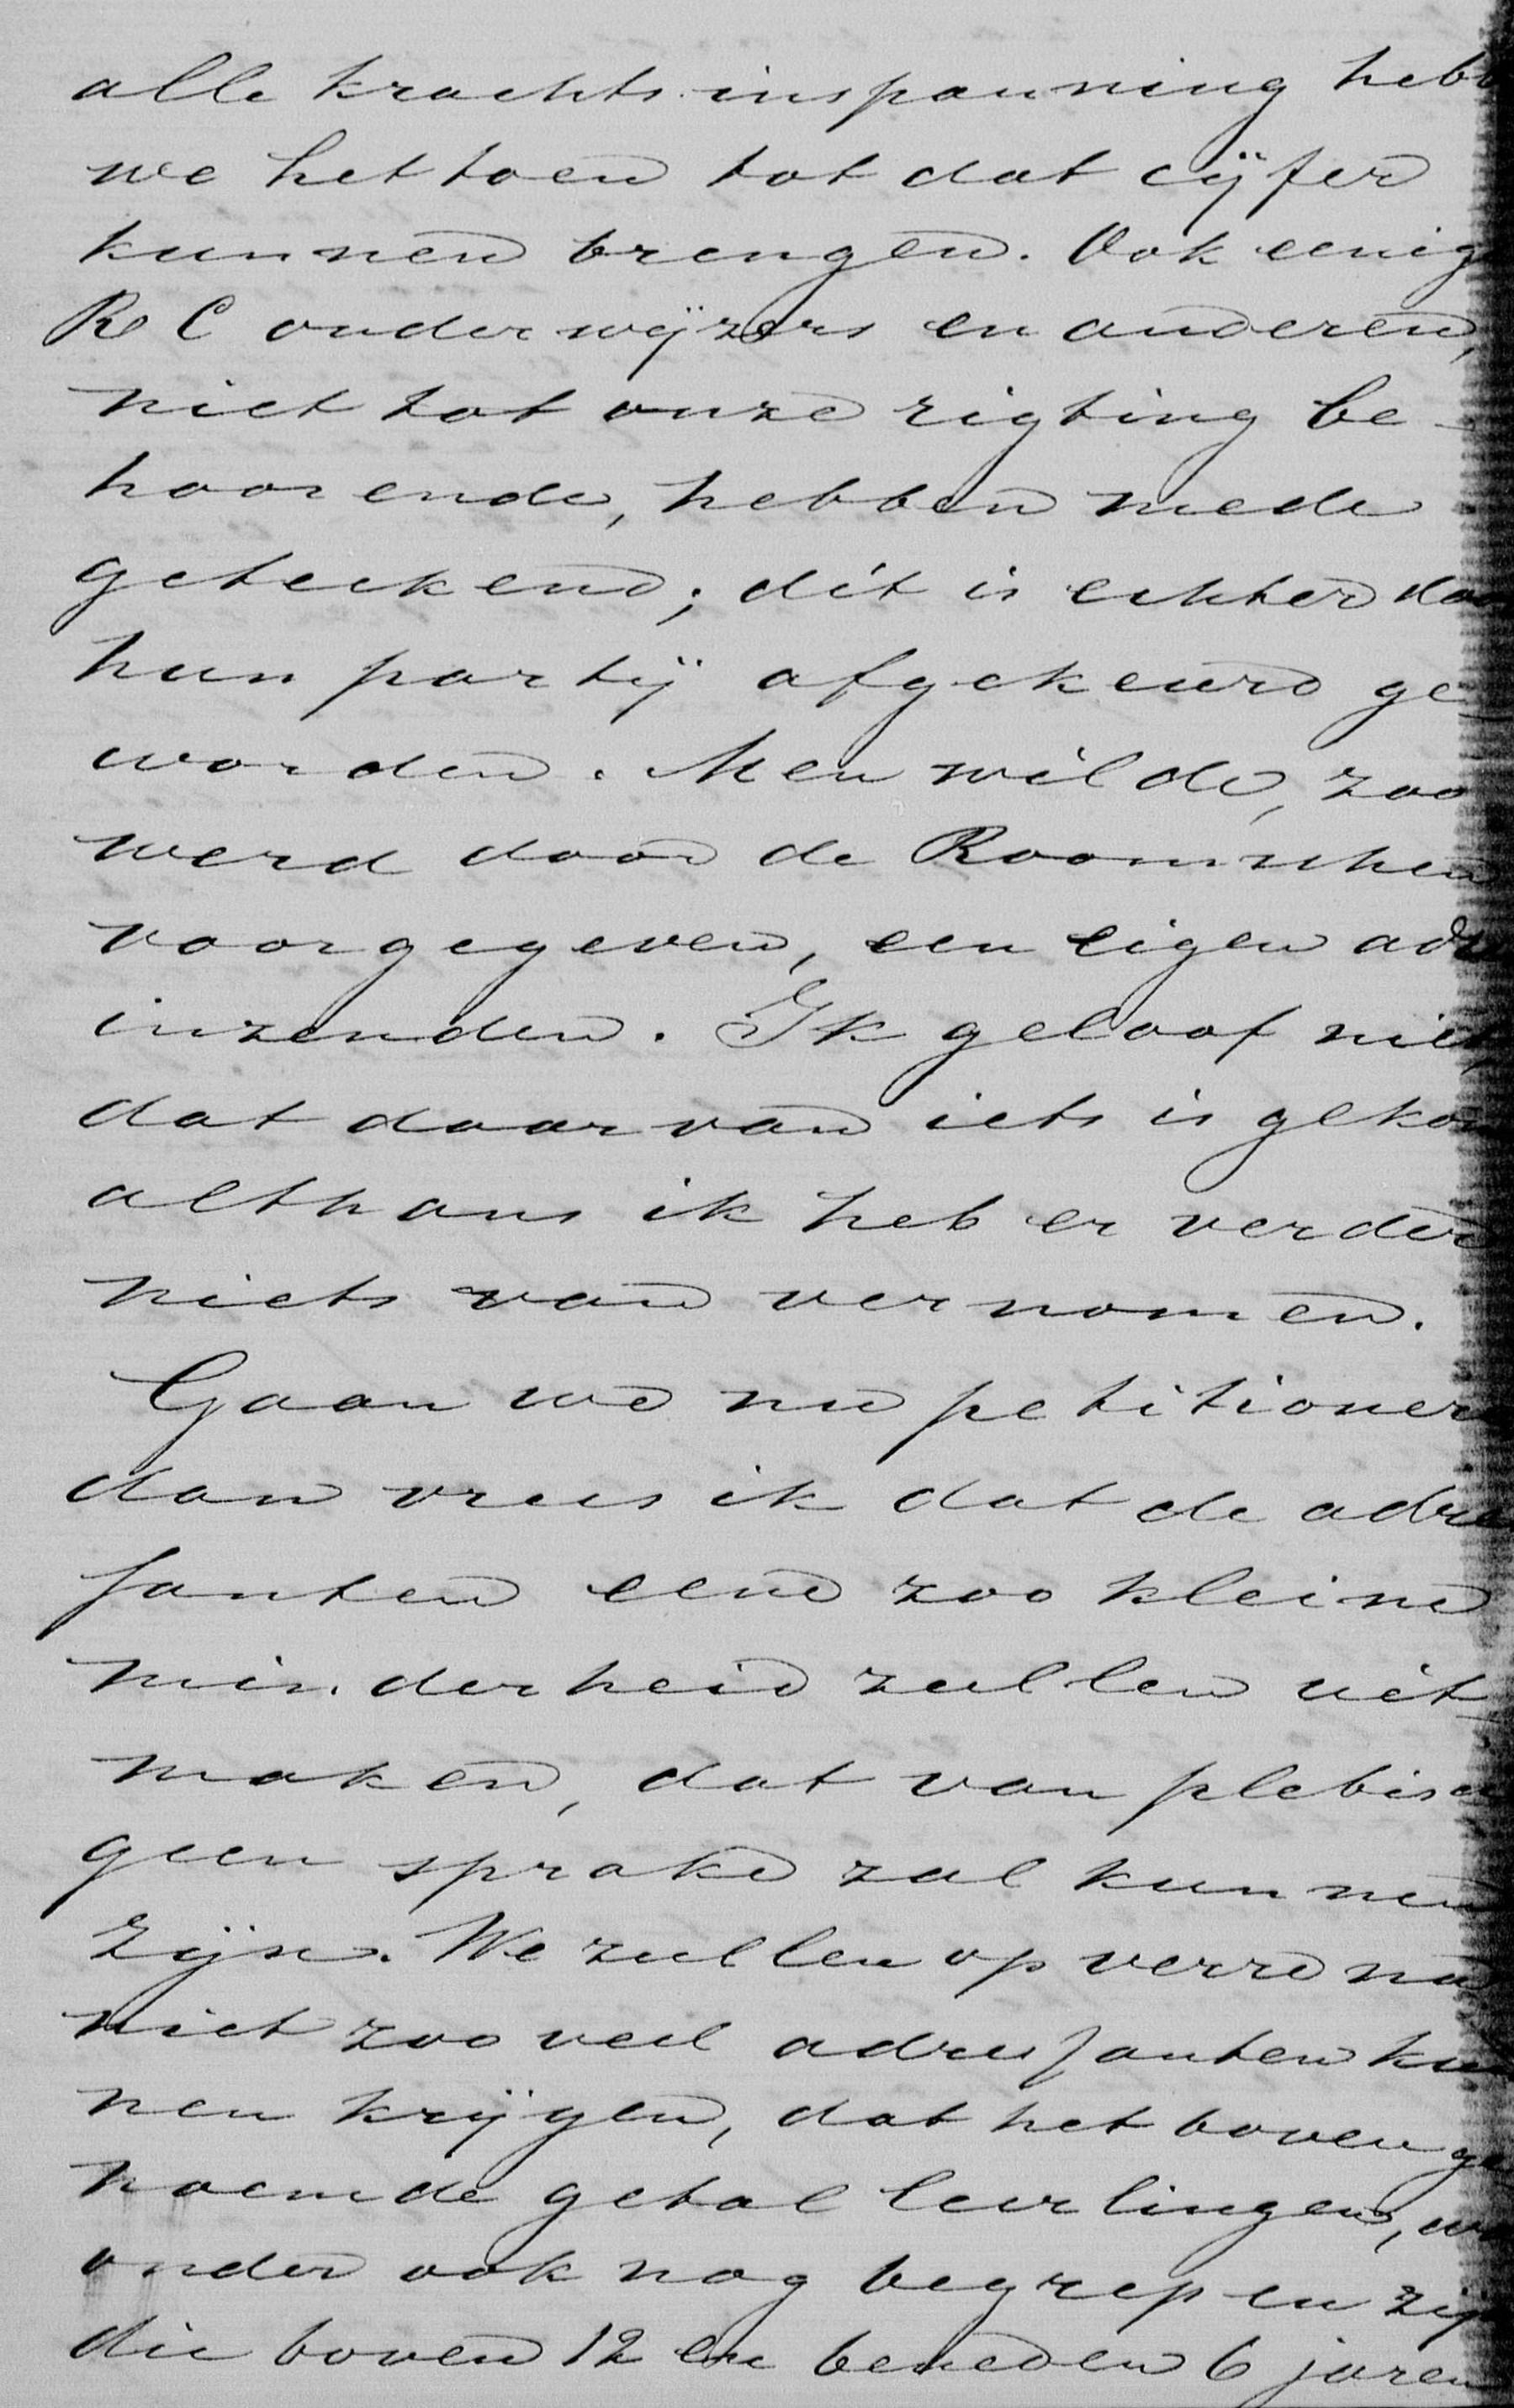 alle krachtsinspanning hebb
we het toen tot dat cijfer
kunnen brengen. Ook eenig
R C onderwijzers en anderen,
niet tot onze rigting be-
hoorende, hebben mede
geteekend; dit is echter doo
hun partij afgekeurd ge
worden. Men wilde, zoo
werd door de Roomschen
voorgegeven, een eigen adr
inzenden. Ik geloof niet,
dat daarvan iets is geko
althans ik heb er verder
niets van vernomen.
Gaan we nu petitioner
dan vrees ik dat de adre
santen eene zoo kleine
minderheid zullen uit
maken, dat van plebisc
geen sprake zal kunnen
zijn. We zullen op verre na
niet zooveel adressanten kun
nen krijgen, dat het bovenge
noemde getal leerlingen, wa
onder ook nog begrepen zijn
die boven 12 en beneden 6 jaren